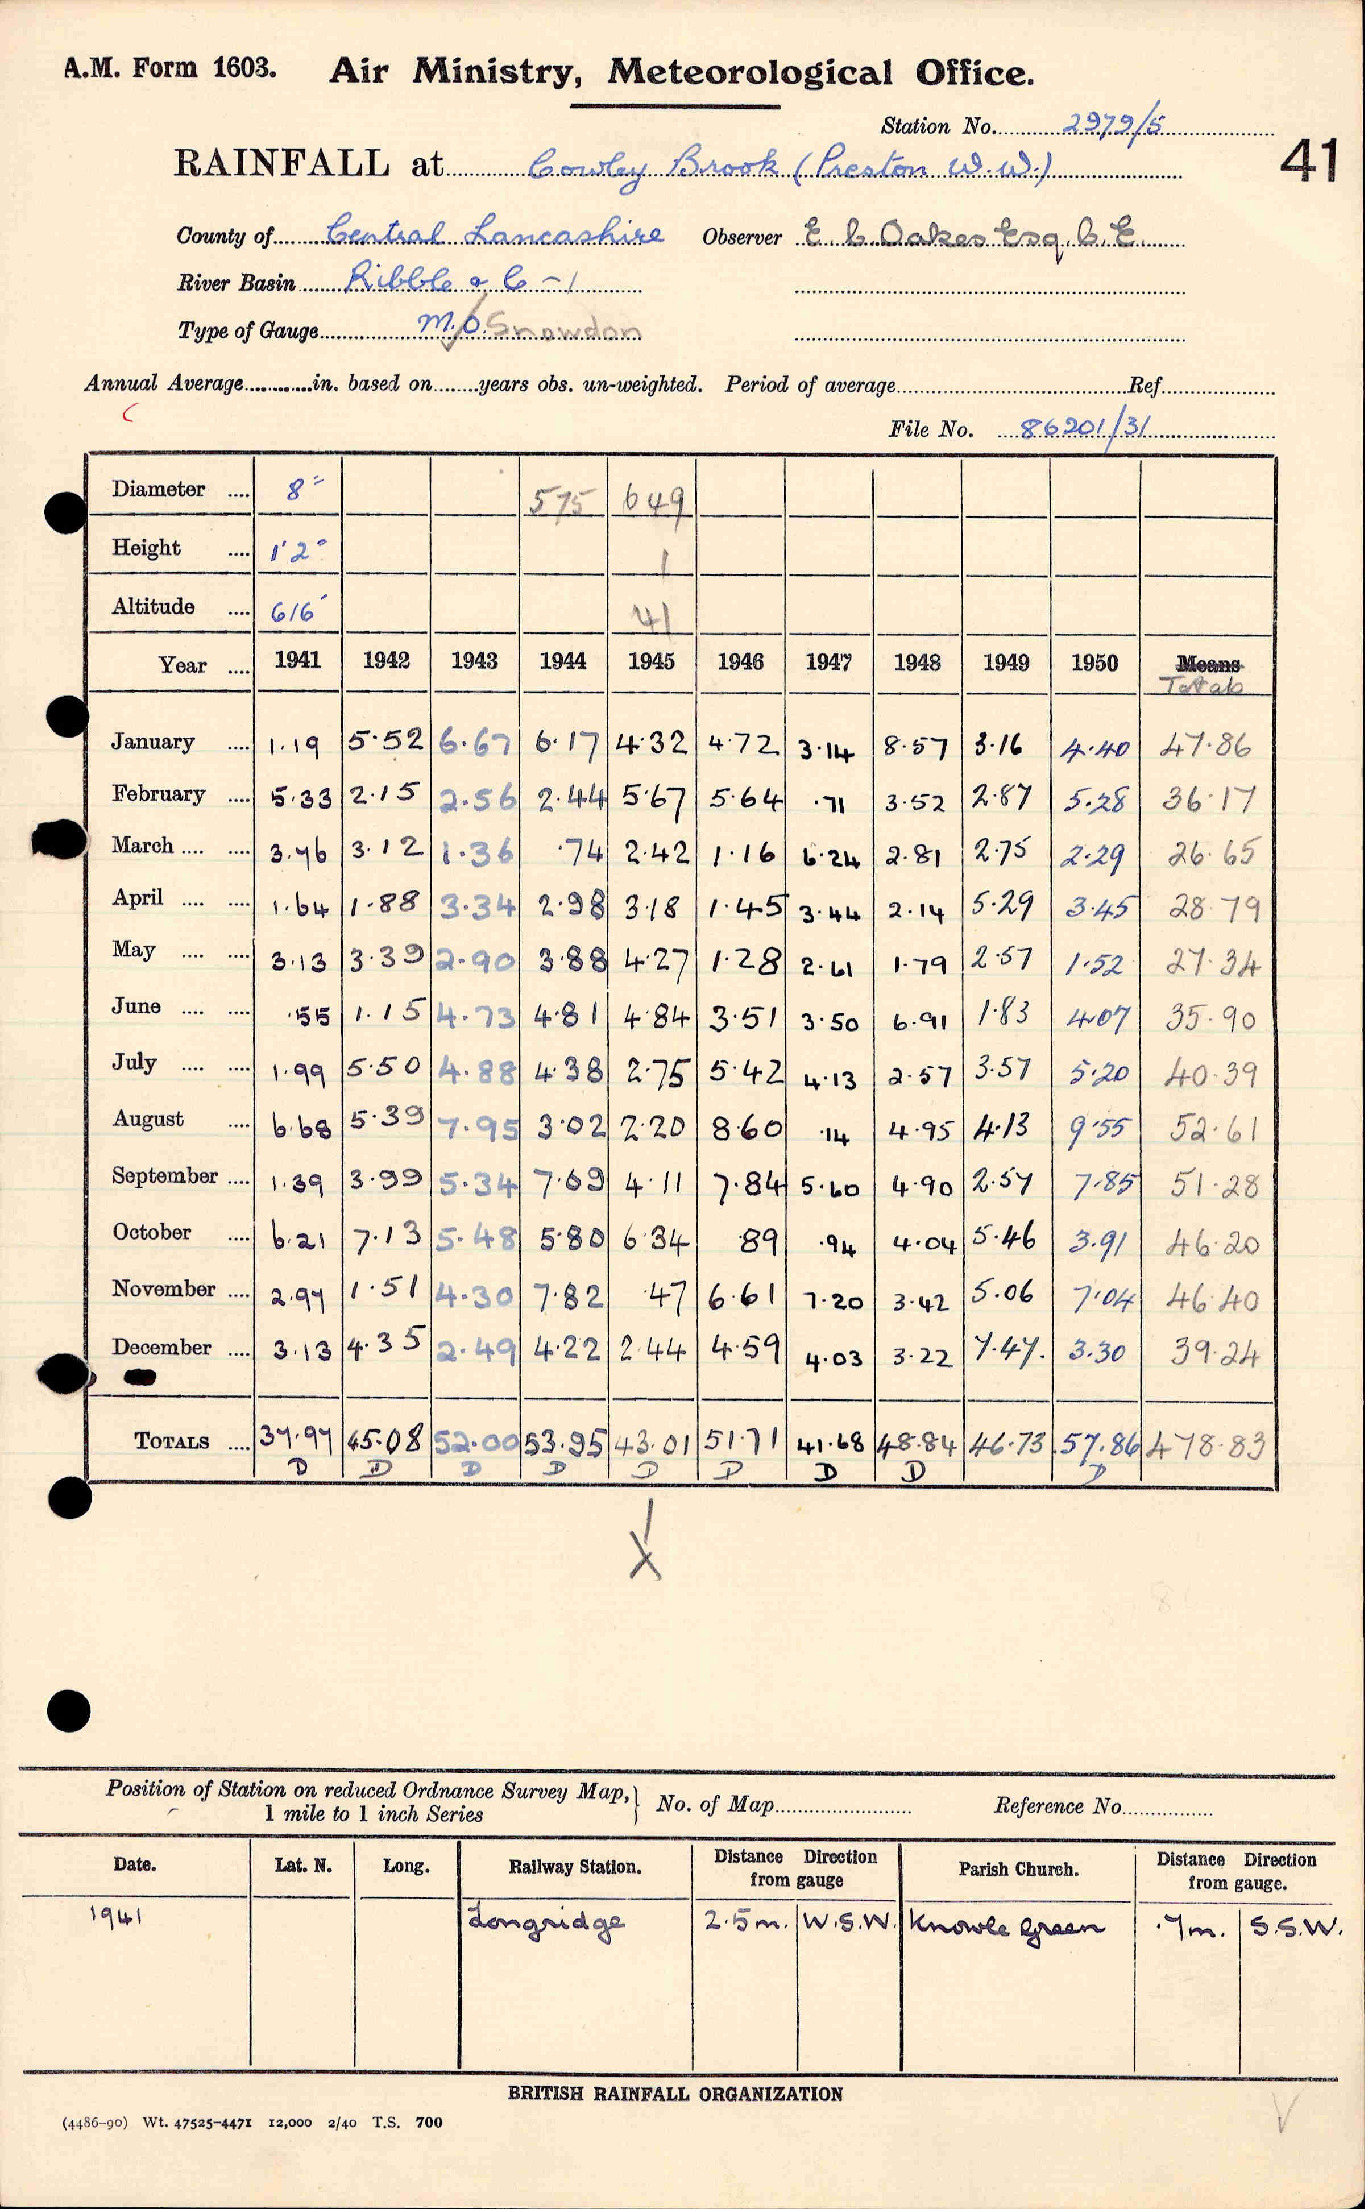 A.M. Form 1603. Air Ministry, Meteorological Office.
Station No. 2979/5
41
RAINFALL at Cowley Brook (Preston W.W.)
County of Central Lancashire Observer E C Oakes Esq. C.E.
River Basin Ribble & C -1
Type of Gauge M.O. Snowdon
Annual Average in. based on years obs. un-weighted. Period of average Ref.
File No. 86201/31
Diameter 8" 575 649
Height 1'2" 1
Altitude 616' 41
Year 1941 1942 1943 1944 1945 1946 1947 1948 1949 1950 Means
Totals
January 1.19 5.52 6.67 6.17 4.32 4.72 3.14 8.57 3.16 4.40 47.86
February 5.33 2.15 2.56 2.44 5.67 5.64 .71 3.52 2.87 5.28 36.17
March 3.76 3.12 1.36 .74 2.42 1.16 6.24 2.81 2.75 2.29 26.65
April 1.64 1.88 3.34 2.98 3.18 1.45 3.44 2.14 5.29 3.45 28.79
May 3.13 3.39 2.90 3.88 4.27 1.28 2.61 1.79 2.57 1.52 27.34
June .55 1.15 4.73 4.81 4.84 3.51 3.50 6.91 1.83 4.07 35.90
July 1.99 5.50 4.88 4.38 2.75 5.42 4.13 2.57 3.57 5.20 40.39
August 6.68 5.39 7.95 3.02 2.20 8.60 .14 4.95 4.13 9.55 52.61
September 1.39 3.99 5.34 7.69 4.11 7.84 5.60 4.90 2.57 7.85 51.28
October 6.21 7.13 5.48 5.80 6.34 .89 .94 4.04 5.46 3.91 46.20
November 2.97 1.51 4.30 7.82 .47 6.61 7.20 3.42 5.06 7.04 46.40
December 3.13 4.35 2.49 4.22 2.44 4.59 4.03 3.22 7.47. 3.30 39.24
TOTALS 37.97 45.08 52.00 53.95 43.01 51.71 41.68 48.84 46.73 57.86 478.83
D D D D D D D D D
Position of Station on reduced Ordnance Survey Map, 1 mile to 1 inch Series No. of Map Reference No.
Date. Lat. N. Long. Railway Station. Distance Direction from gauge Parish Church. Distance Direction from gauge.
1941 Longridge 2.5m. W.S.W. Knowle Green .7m. S.S.W.
BRITISH RAINFALL ORGANIZATION
(4486-90) Wt. 47525-4471 12,000 2/40 T.S. 700